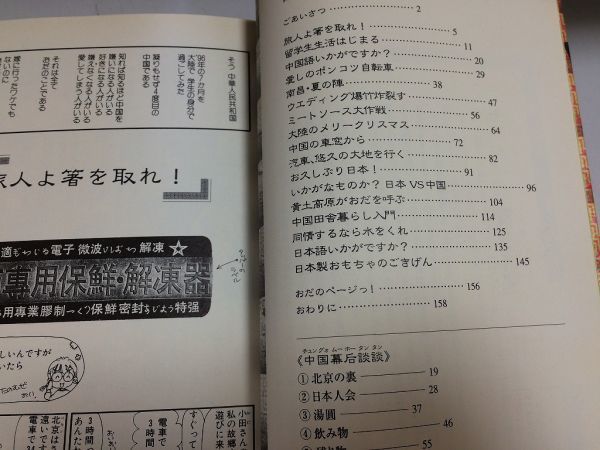 ごあいさつ 2
旅人よ箸を取れ！ 5
留学生生活はじまる 11
中国語いかがですか？ 20
愛しのポンコツ自転車 29
南昌・夏の陣 38
ウエディング爆竹炸裂す 47
ミートソース大作戦 56
大陸のメリークリスマス 64
中国の車窓から 72
汽車、悠久の大地を行く 82
お久しぶり日本！ 91
いかがなものか？日本VS中国 96
黄土高原がおだを呼ぶ 104
中国田舎暮らし入門 114
同情するなら水をくれ 125
日本語いかがですか？ 135
日本製おもちゃのごきげん 145
おだのページっ！ 156
おわりに 158
チュングォ ムーホー タンタン
《中国幕后談談》
①北京の裏 19
②日本人会 28
③湯圓 37
④飲み物 46
55
そう 中華人民共和国
'96年の7か月を
大陸で 学生の身分で
過ごしてみた
懲りもせず4度目の
中国である
知れば知るほど中国を
嫌いになる人がいる
好きになる人がいる
嫌えなくなる人がいる
愛してしまう人がいる
それは全て
おだのことである
嫁に行ったワケでも
ないのに
旅人よ箸を取れ！』
電子微波 解凍 ☆
專用保鮮・解凍器
用専業膠制 保鮮密封 特强
しいんですが
いたら
小田さん
私の故郷
遊びに来
すぐって
電車で
3時間
3時間つ
あんたね
北京はさ
遠いです
電車で34